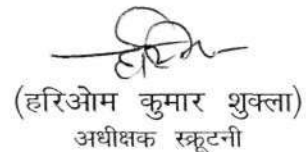 (हरिओम कुमार शुक्ला)
अधीक्षक स्क्रूटनी